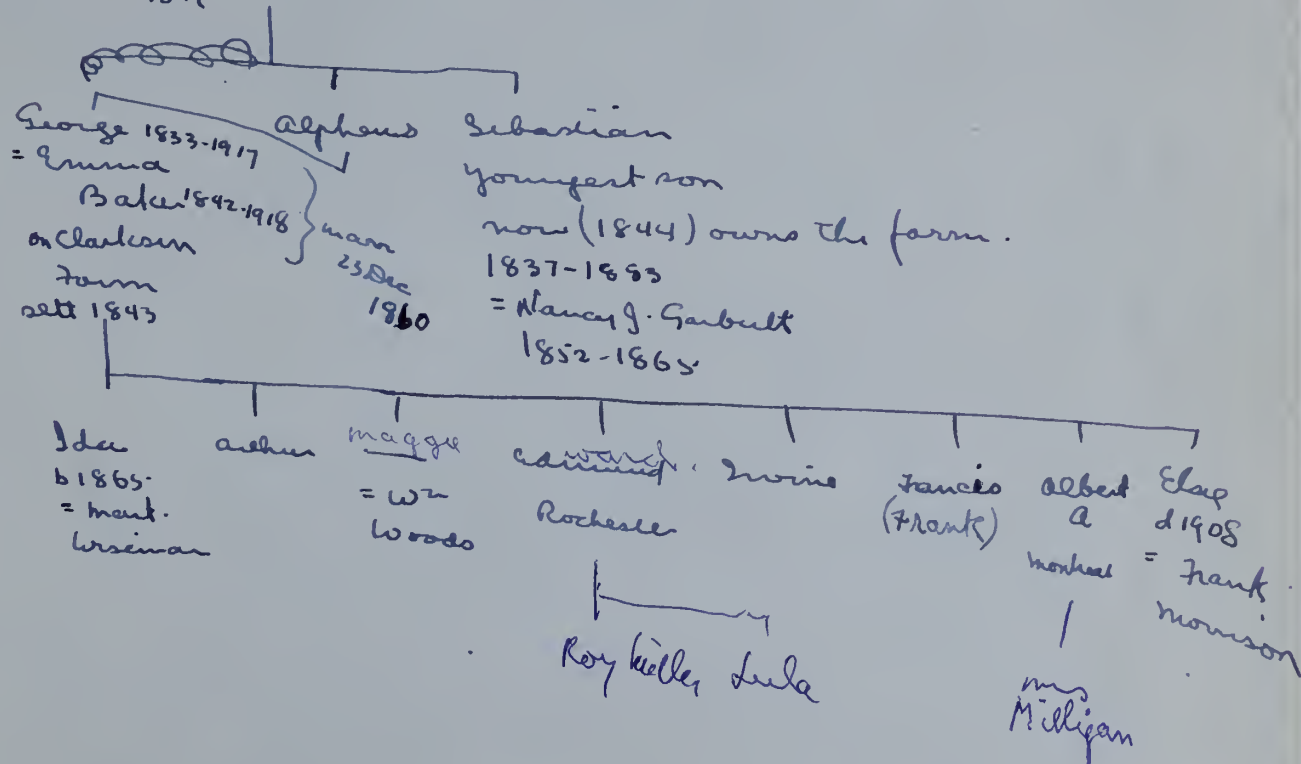 George 1833-1917
= Emma
Baker 1842-1918
on Clarkson
Farm
sett 1843
marr
23 Dec
1860
Alpheus
Sebastian
youngest son
now (1844) owns the farm.
1837-1883
= Nancy J. Garbutt
1852-1865
Ida
b 1865
= mart.
Wiseman
Arthur
Maggie
= Wm
Woods
Rochester
Irvine
Francis
(Frank)
Albert
A
Montreal
d 1908
= Frank
Morrison
Roy
Lula
Mrs
Milligan